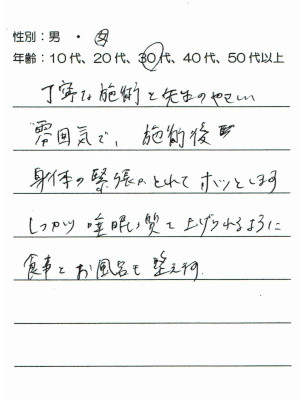 性別:男 ・ 女
年齢:10代、20代、30代、40代、50代以上
丁寧な施術と先生のやさしい
雰囲気で、施術後
身体の緊張がとれてホッとします
しっかり睡眠の質を上げられるように
食事とお風呂も整えます。